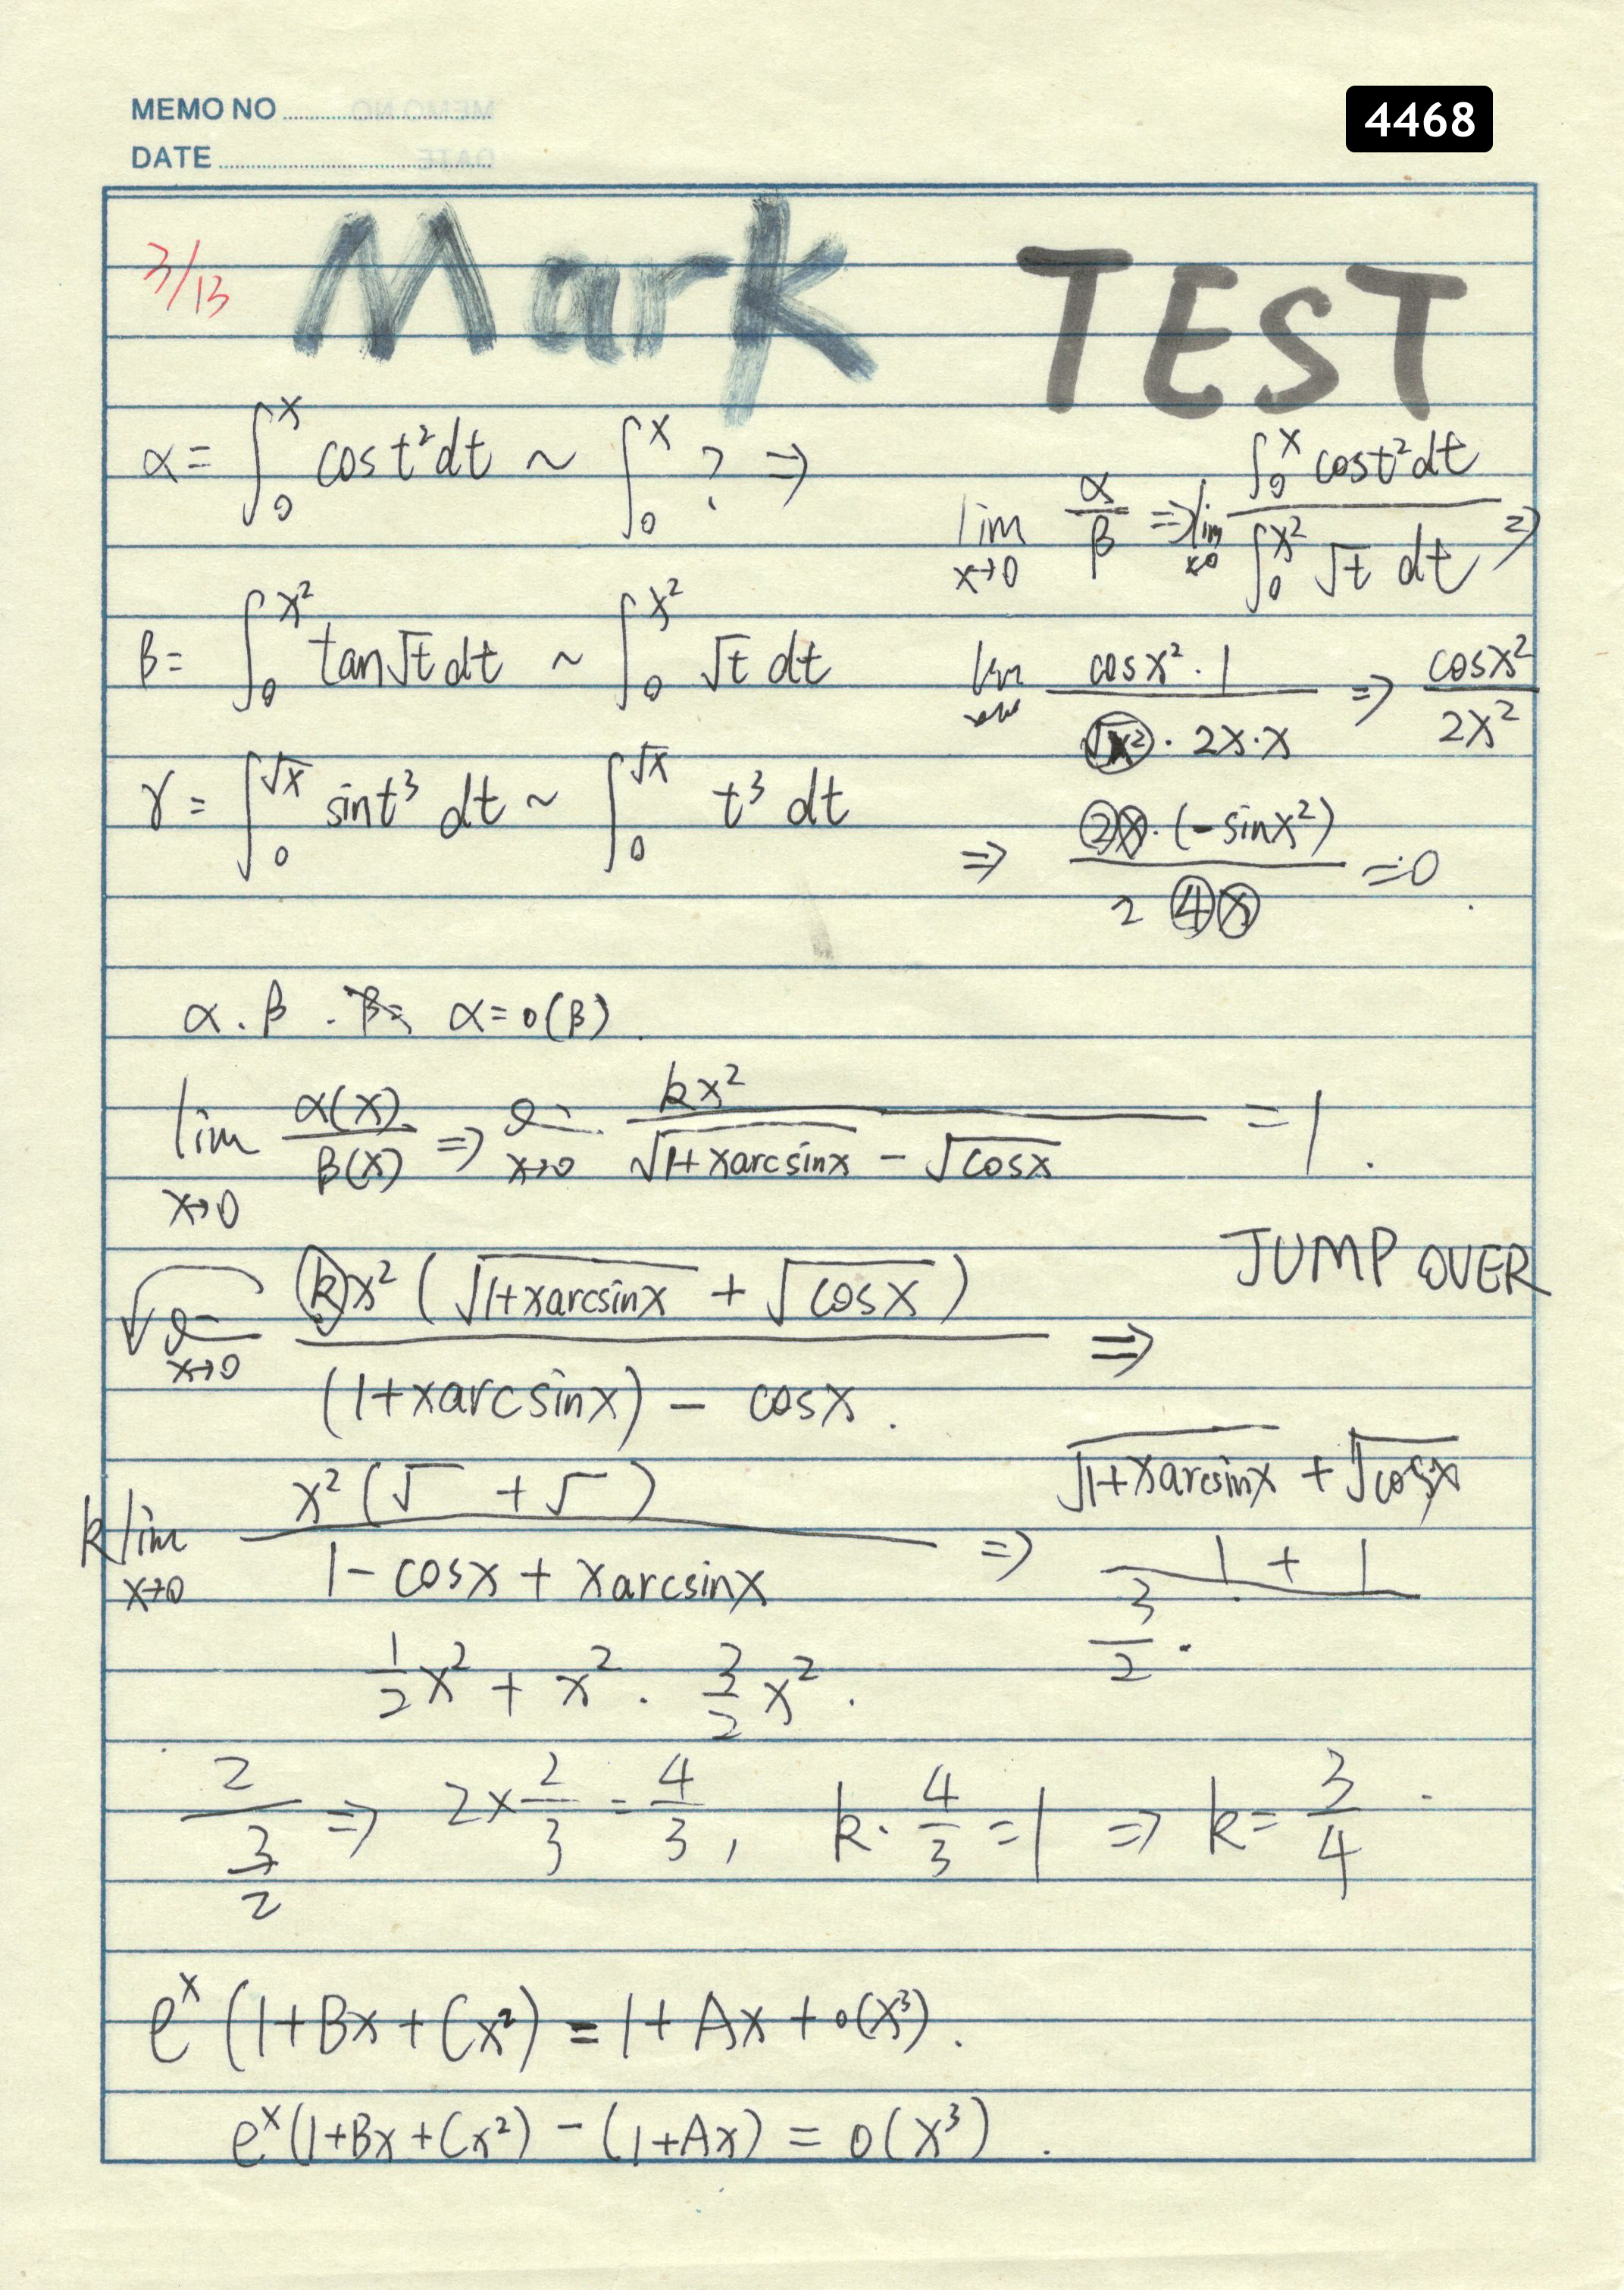 MEMO NO
4468
DATE
3/13 Mark TEST
α = ∫₀ˣ cos t² dt ~ ∫₀ˣ ? ⇒
lim x→0 α/β ⇒ lim x→0 ∫₀ˣ cos t² dt / ∫₀^(x²) √t dt ⇒
β = ∫₀^(x²) tan√t dt ~ ∫₀^(x²) √t dt
lim cos x² · 1 / √x² · 2x · x ⇒ cos x² / 2x²
γ = ∫₀^(√x) sin t³ dt ~ ∫₀^(√x) t³ dt
⇒ 2x · (- sin x²) / 2 4 x = 0
α . β . β = α = o(β)
lim x→0 α(x) / β(x) ⇒ x→0 kx² / √(1+x arcsin x) - √(cos x) = 1 .
JUMP OVER
x→0 kx² ( √(1+x arcsin x) + √(cos x) ) / (1+x arcsin x) - cos x . ⇒
k lim x→0 x² ( √ + √ ) / 1 - cos x + x arcsin x ⇒ √(1+x arcsin x) + √(cos x)
1 + 1 / 3/2 .
1/2 x² + x² . 3/2 x² .
2 / 3/2 ⇒ 2 × 2/3 = 4/3 , k · 4/3 = 1 ⇒ k = 3/4 .
eˣ (1+Bx+Cx²) = 1+Ax+o(x³) .
eˣ (1+Bx+Cx²) - (1+Ax) = o(x³) .